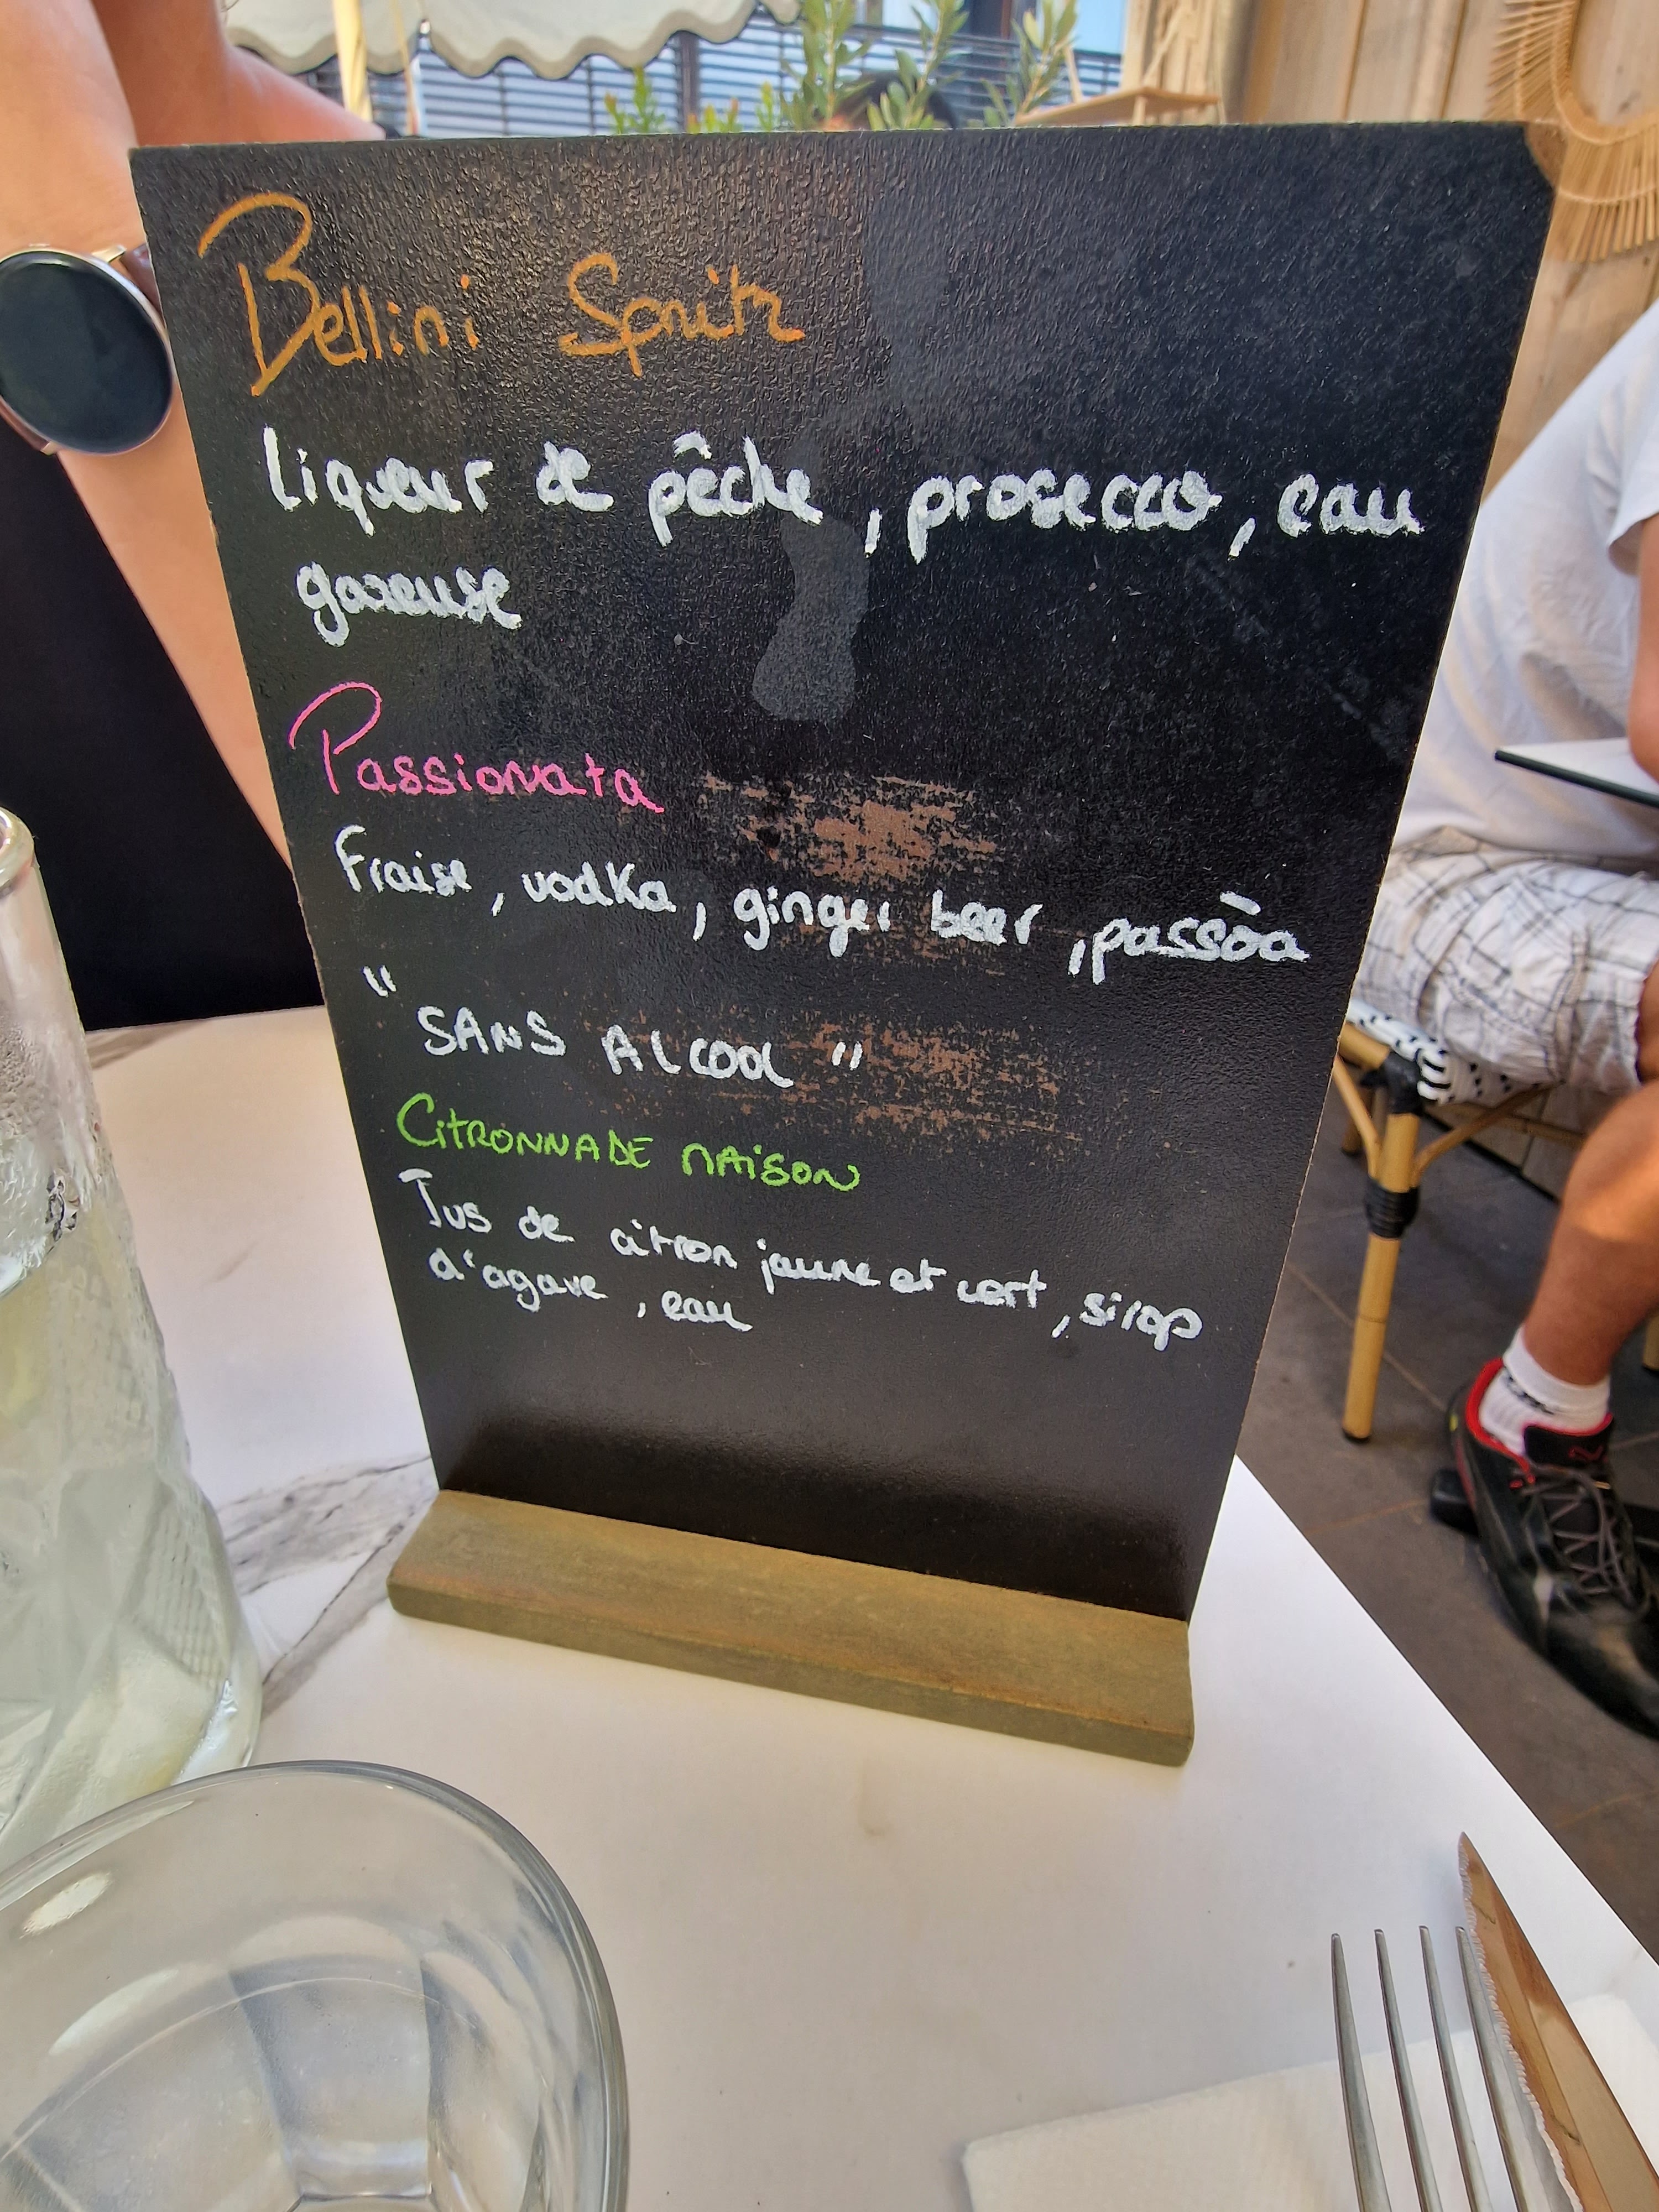 Bellini Spritz
Liqueur de pêche, prosecco, eau
gazeuse
Passionata
Fraise, vodka, ginger beer, passõa
" SANS ALCOOL "
CITRONNADE MAISON
Jus de citron jaune et vert, sirop
d'agave, eau